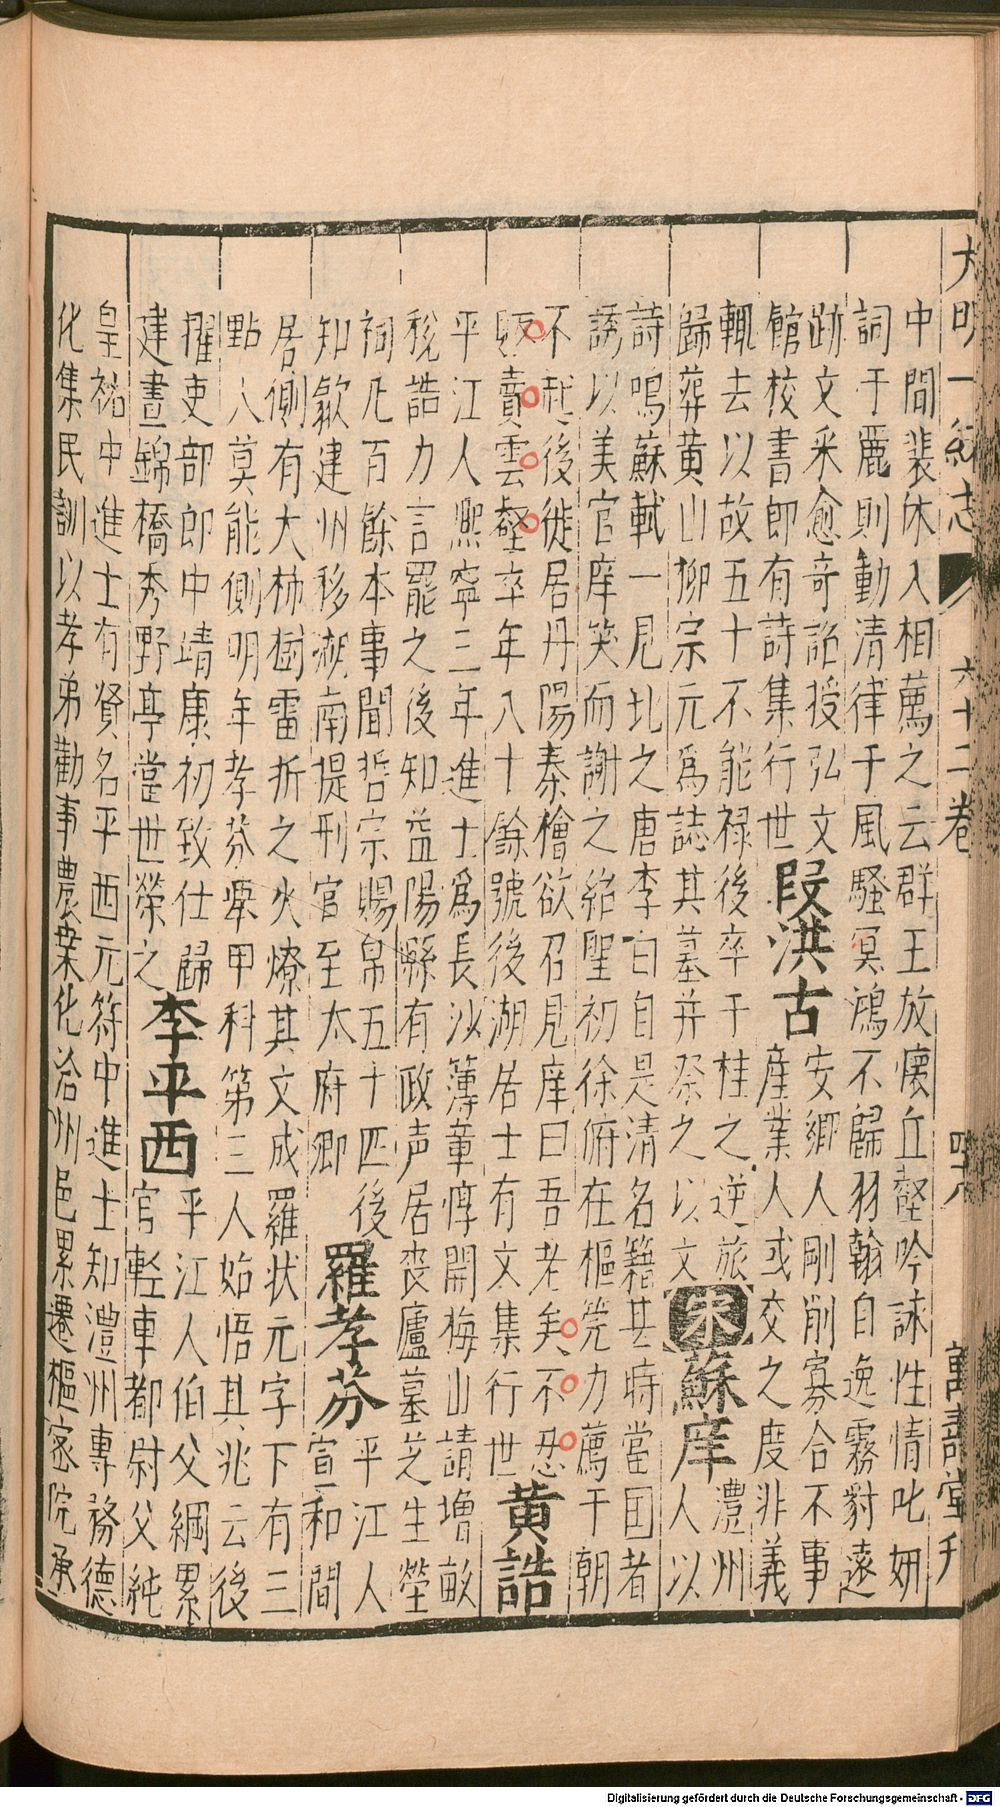 大明一統志 六十二卷 四十八 萬壽堂刋
中間裴休入相薦之云群王放懷丘壑吟詠性情叱妍
詞于麗則動清律于風騷冥鴻不歸羽翰自逸霧豹遠
跡文釆愈奇詔授弘文
館校書郎有詩集行世段洪古安鄉人剛削寡合不事
產業人或交之度非義
輒去以故五十不能禄後卒于桂之逆旅
歸葬黄山柳宗元爲誌其墓并祭之以文宋蘇庠澧州
人以
詩鳴蘇軾一見比之唐李白自是清名籍甚時當国者
誘以美官庠笑而謝之紹聖初徐俯在樞筦力薦于朝
不起後徙居丹陽秦檜欲召見庠曰吾老矣不忍
販賣雲壑卒年八十餘號後湖居士有文集行世黄誥
平江人熙寧三年進士爲長沙簿章惇開梅山請增畝
稅誥力言罷之後知益陽縣有政声居丧廬墓芝生塋
祠凡百餘本事聞哲宗賜帛五十匹後
知歙建州移湖南提刑官至太府卿羅孝芬平江人
宣和間
居側有大柿樹雷折之火燎其文成羅状元字下有三
點人莫能側明年孝芬㮚甲科第三人始悟其兆云後
擢吏部郎中靖康初致仕歸
建晝錦橋秀野亭當世榮之李平西平江人伯父綱累
官輕車都尉父純
皇祐中進士有賢名平西元符中進士知澧州專務德
化集民訓以孝弟勸事農桒化洽州邑累遷樞密院承
Digitalisierung gefördert durch die Deutsche Forschungsgemeinschaft - DFG